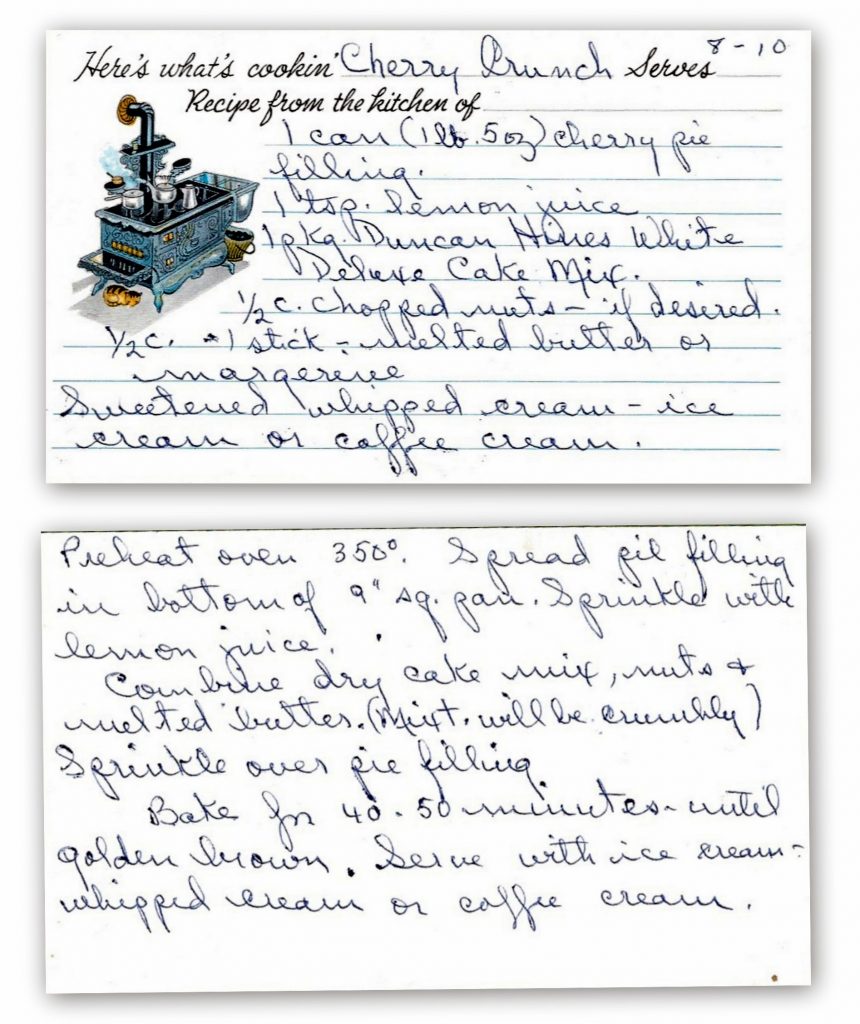 Here's what's cookin' Cherry Crunch Serves 8-10
Recipe from the kitchen of
1 can (1 lb. 5 oz) cherry pie
filling.
1 tsp. lemon juice
1 pkg. Duncan Hines White
Deluxe Cake Mix.
1/2 c. chopped nuts - if desired.
1/2 c. - 1 stick - melted butter or
margerine
Sweetened whipped cream - ice
cream or coffee cream.
Preheat oven 350°. Spread pie filling
in bottom of 9" sq. pan. Sprinkle with
lemon juice.
Combine dry cake mix, nuts &
melted butter. (Mixt. will be crumbly)
Sprinkle over pie filling
Bake for 40-50 minutes - until
golden brown. Serve with ice cream -
whipped cream or coffee cream.